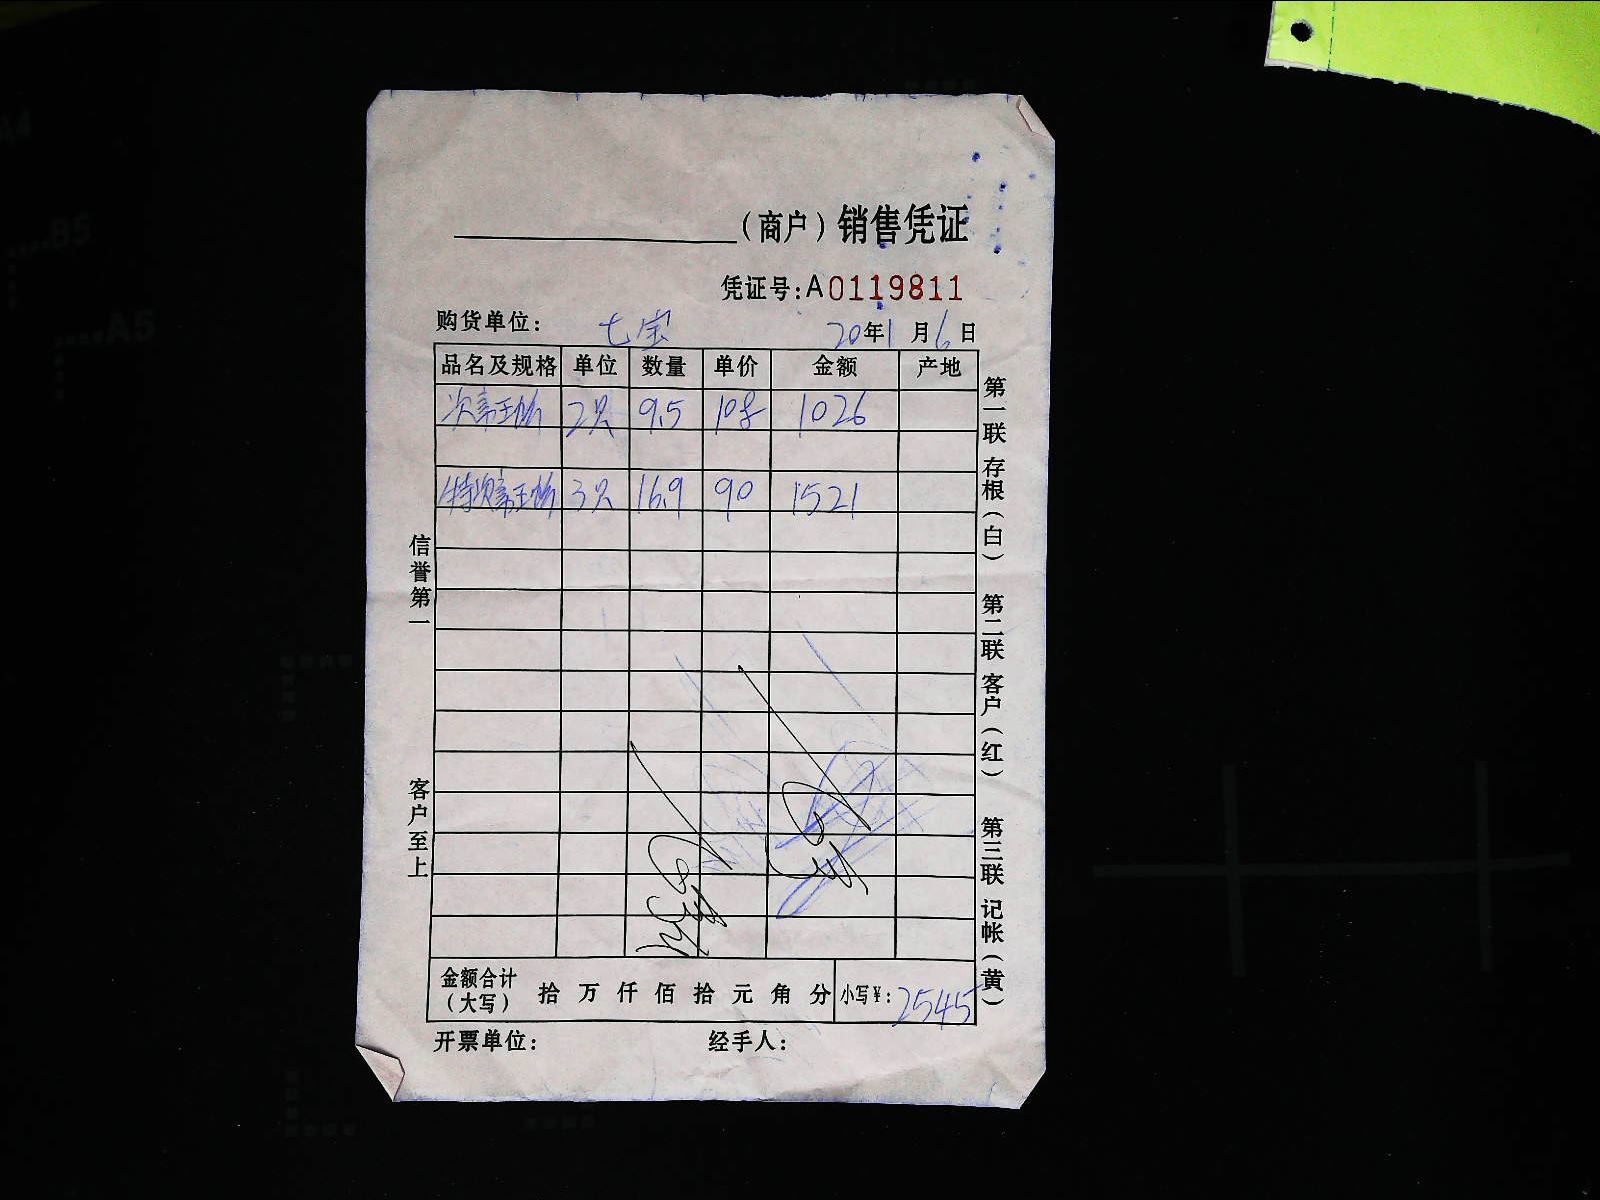 （商户）销售凭证
凭证号：A0119811
购货单位： 七宝 20年1月6日
品名及规格 单位 数量 单价 金额 产地
次帝王蚧 2只 9.5 108 1026
特次帝王蚧 3只 16.9 90 1521
信誉第一
客户至上
第一联 存根（白） 第二联 客户（红） 第三联 记帐（黄）
金额合计（大写） 拾 万 仟 佰 拾 元 角 分 小写¥：2545
开票单位： 经手人：
A4
B5
A5